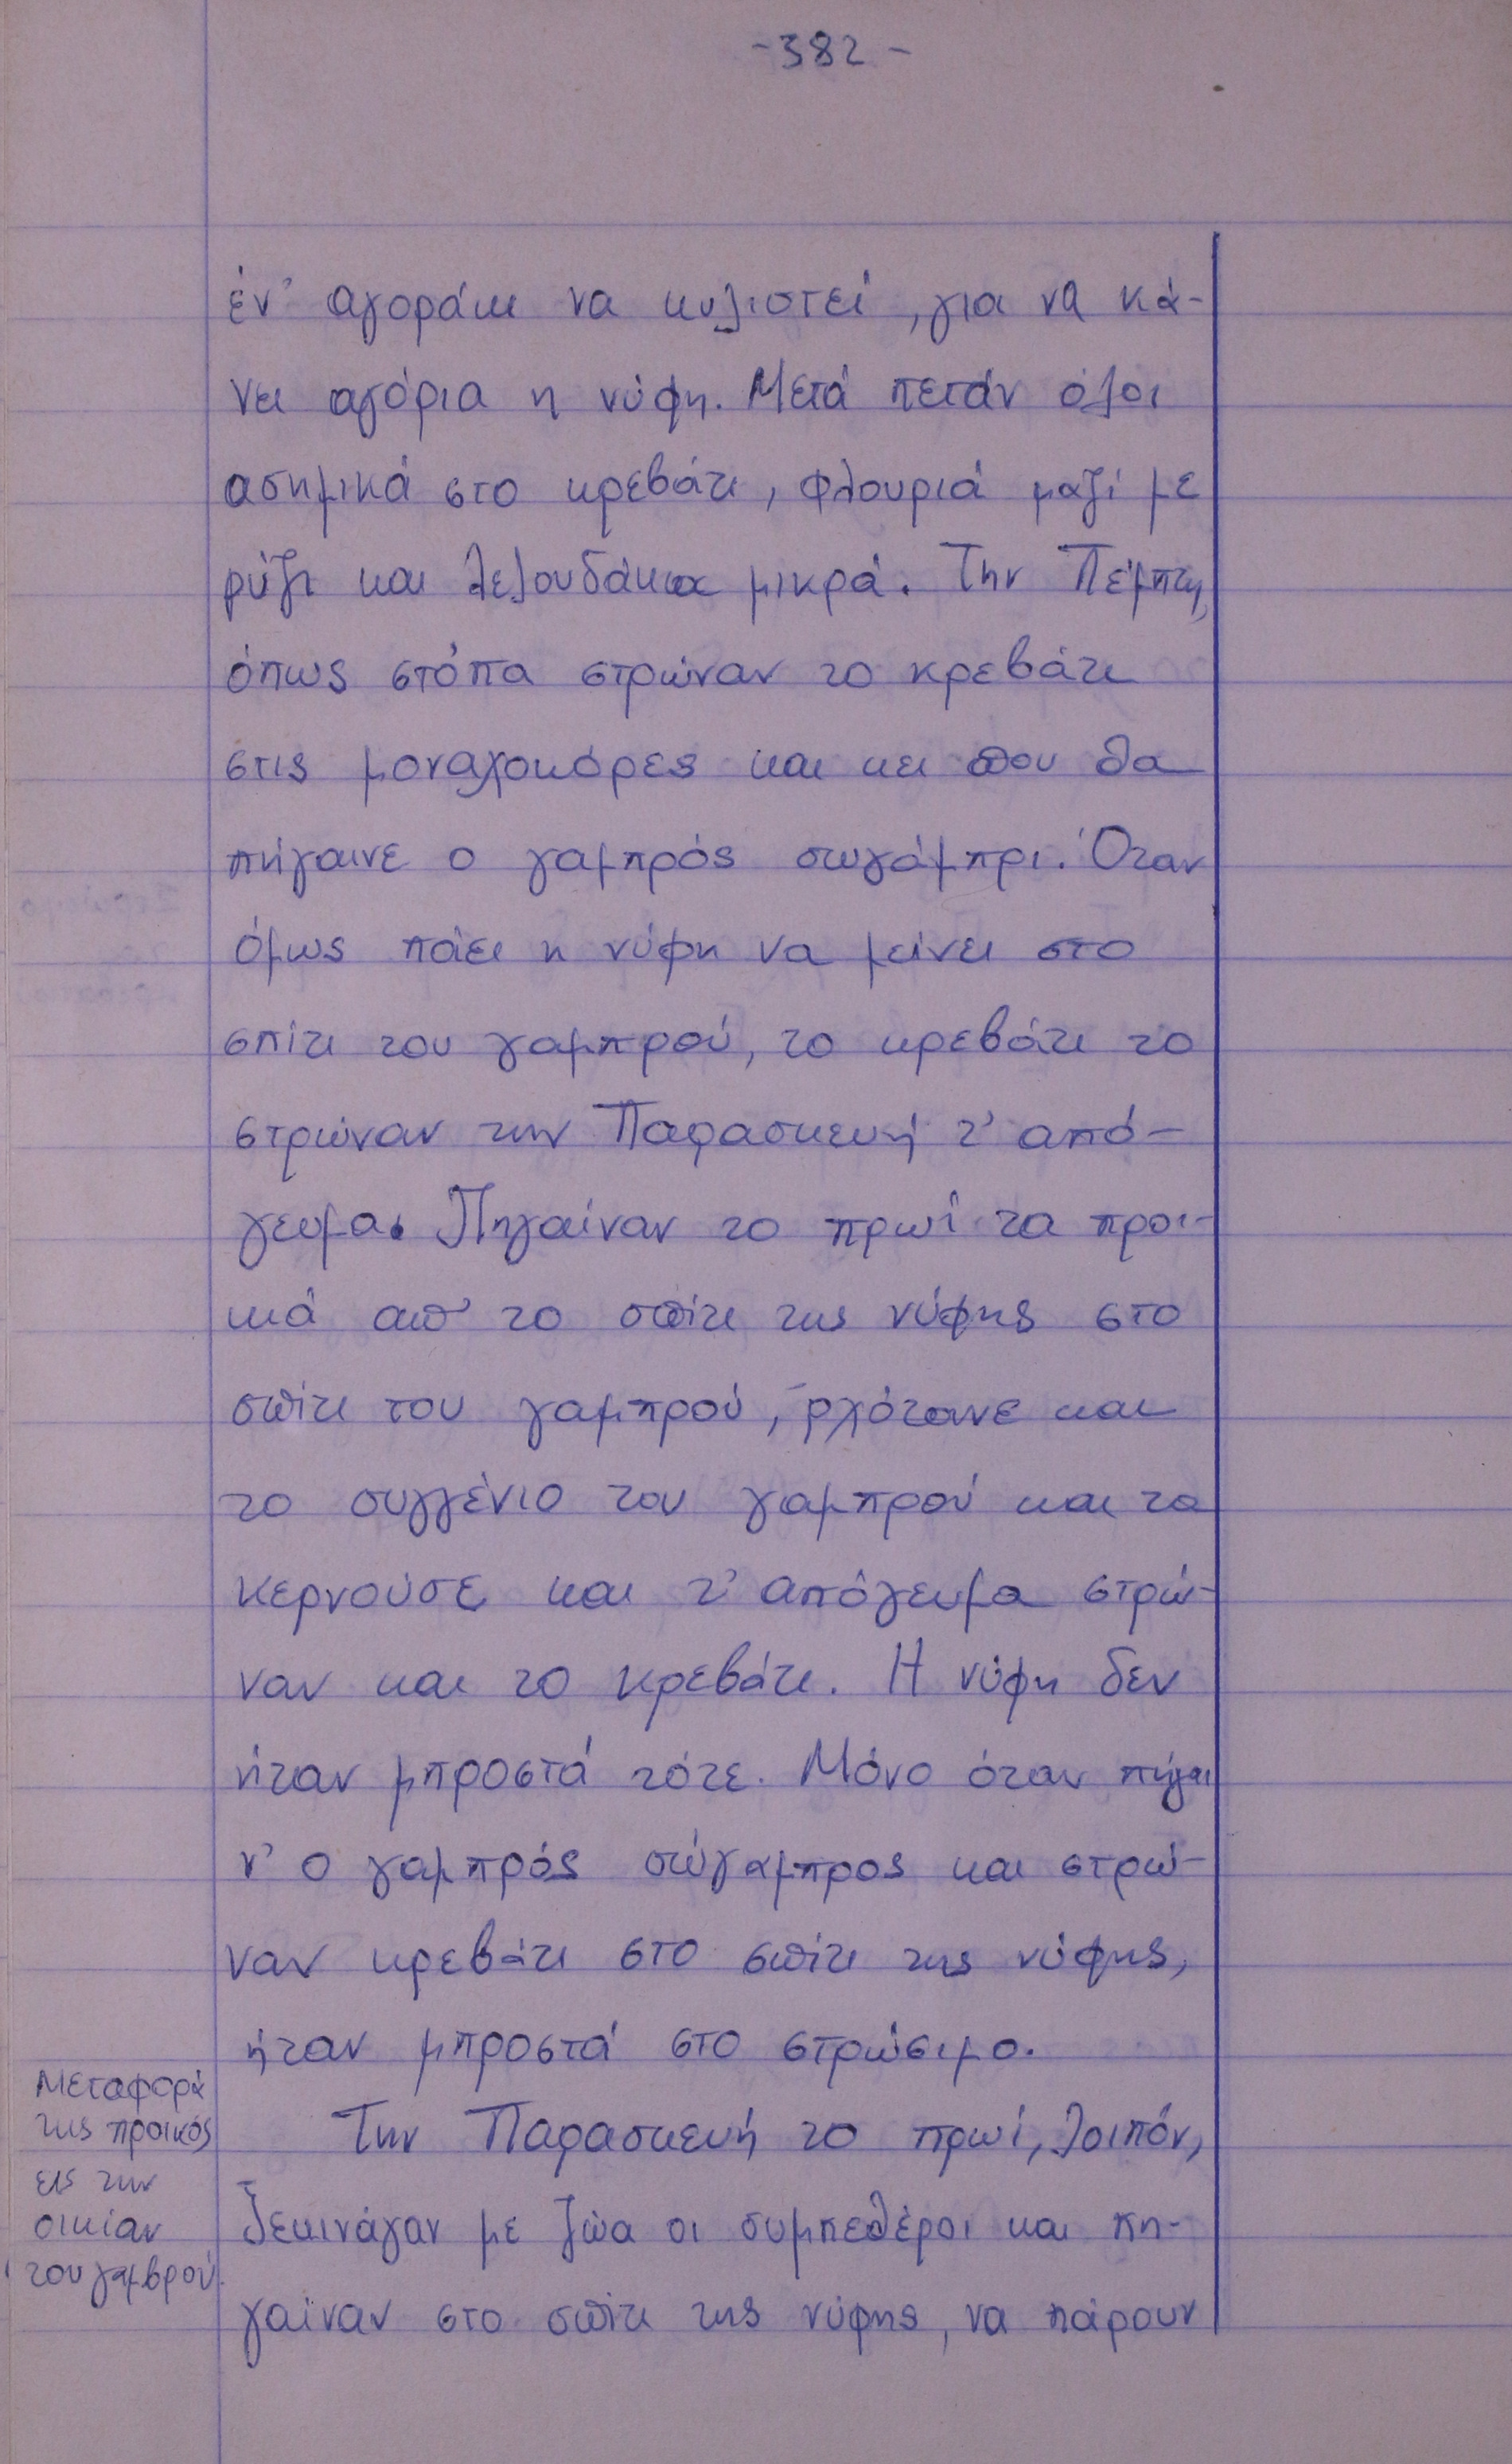 -382-
έν' αγοράκι να κυλιστεί, για να κά-
νει αγόρια η νύφη. Μετά πετάν όλοι
ασημικά στο κρεβάτι, φλουριά μαζί με
ρύζι και λελουδάκια μικρά. Την Πέμπτη,
όπως στόπα στρώναν το κρεβάτι
στις μοναχοκόρες και κει που θα
πήγαινε ο γαμπρός σωγάμπρι. Όταν
όμως πάει η νύφη να μείνει στο
σπίτι του γαμπρού, το κρεβάτι το
στρώναν την Παρασκευή τ' από-
γευμα. Πηγαίναν το πρωί τα προι-
κιά απ' το σπίτι της νύφης στο
σπίτι του γαμπρού, ρχότανε και
το συγγένιο του γαμπρού και τα
κερνούσε και τ' απόγευμα στρώ-
ναν και το κρεβάτι. Η νύφη δεν
ήταν μπροστά τότε. Μόνο όταν πήγαι
ν' ο γαμπρός σώγαμπρος και στρώ-
ναν κρεβάτι στο σπίτι της νύφης,
ήταν μπροστά στο στρώσιμο.
Μεταφορά
της προικός
εις την
οικίαν
του γαμβρού.
Την Παρασκευή το πρωί, λοιπόν,
ξεκινάγαν με ζώα οι συμπεθέροι και πη-
γαίναν στο σπίτι της νύφης, να πάρουν